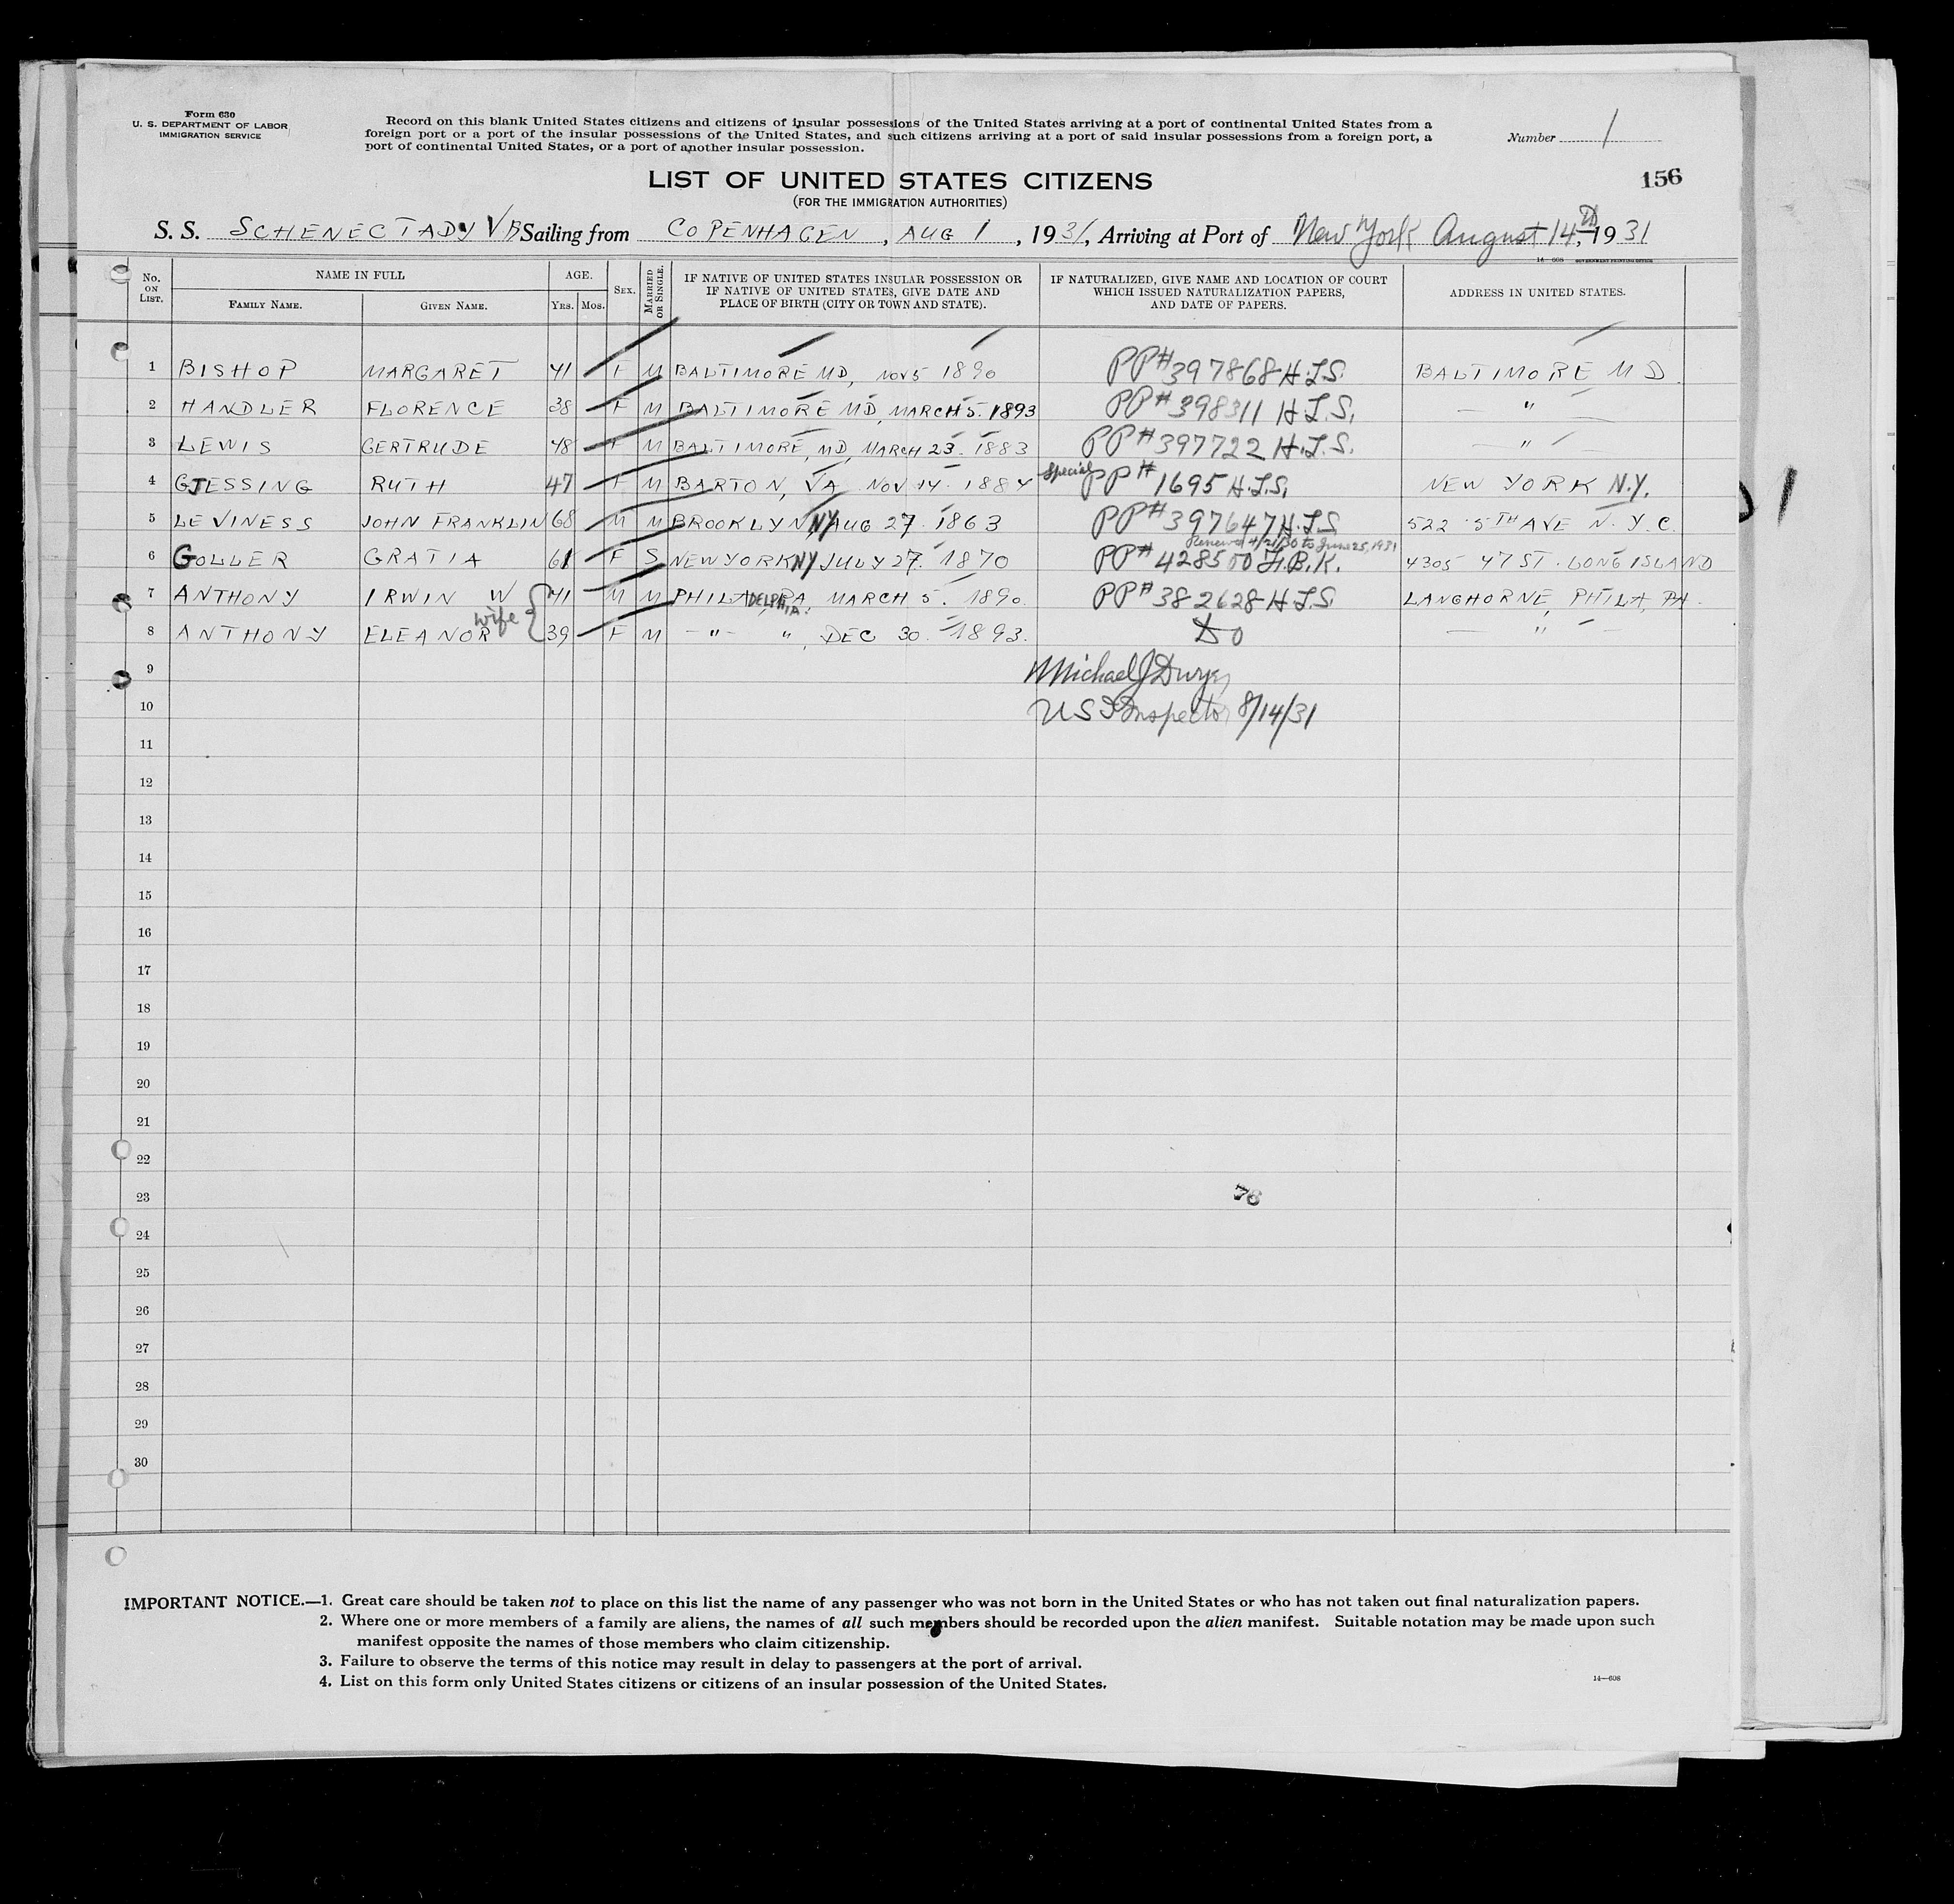 Form 630
U. S. DEPARTMENT OF LABOR
IMMIGRATION SERVICE
Record on this blank United States citizens and citizens of insular possessions of the United States arriving at a port of continental United States from a
foreign port or a port of the insular possessions of the United States, and such citizens arriving at a port of said insular possessions from a foreign port, a
port of continental United States, or a port of another insular possession.
Number 1
156
LIST OF UNITED STATES CITIZENS
(FOR THE IMMIGRATION AUTHORITIES)
S. S. SCHENECTADY Sailing from COPENHAGEN, AUG 1, 1931, Arriving at Port of New York August 14th, 1931
14—608 GOVERNMENT PRINTING OFFICE
No. ON LIST. NAME IN FULL AGE. SEX. MARRIED OR SINGLE. IF NATIVE OF UNITED STATES INSULAR POSSESSION OR IF NATIVE OF UNITED STATES, GIVE DATE AND PLACE OF BIRTH (CITY OR TOWN AND STATE). IF NATURALIZED, GIVE NAME AND LOCATION OF COURT WHICH ISSUED NATURALIZATION PAPERS, AND DATE OF PAPERS. ADDRESS IN UNITED STATES.
FAMILY NAME. GIVEN NAME. YRS. MOS.
1 BISHOP MARGARET 41 F M BALTIMORE MD, NOV 5 1890 PP# 397868 H.L.S. BALTIMORE MD.
2 HANDLER FLORENCE 38 F M BALTIMORE MD, MARCH 5. 1893 PP# 398311 H.L.S. — " —
3 LEWIS GERTRUDE 48 F M BALTIMORE, MD, MARCH 23. 1883 PP# 397722 H.L.S. — " —
4 GJESSING RUTH 47 F M BARTON, VA NOV 14. 1884 Special PP# 1695 H.L.S. NEW YORK N.Y.
5 LE VINESS JOHN FRANKLIN 68 M M BROOKLYN NY AUG 27. 1863 PP# 397647 H.L.S. 522 5TH AVE N.Y.C.
Renewed 4/21/30 to June 25, 1931
6 GOLLER GRATIA 61 F S NEW YORK NY JULY 27. 1870 PP# 428500 F.B.K. 4305 47 ST. LONG ISLAND
7 ANTHONY IRWIN W 41 M M PHILADELPHIA. MARCH 5. 1890. PP# 382628 H.L.S. LANGHORNE, PHILA, PA.
wife
8 ANTHONY ELEANOR 39 F M — " — ", DEC 30. 1893. Do — " —
9 Michael J Dwyer
10 US Inspector 8/14/31
11
12
13
14
15
16
17
18
19
20
21
22
23
24
25
26
27
28
29
30
IMPORTANT NOTICE.—1. Great care should be taken not to place on this list the name of any passenger who was not born in the United States or who has not taken out final naturalization papers.
2. Where one or more members of a family are aliens, the names of all such members should be recorded upon the alien manifest. Suitable notation may be made upon such
manifest opposite the names of those members who claim citizenship.
3. Failure to observe the terms of this notice may result in delay to passengers at the port of arrival.
4. List on this form only United States citizens or citizens of an insular possession of the United States.
14—608